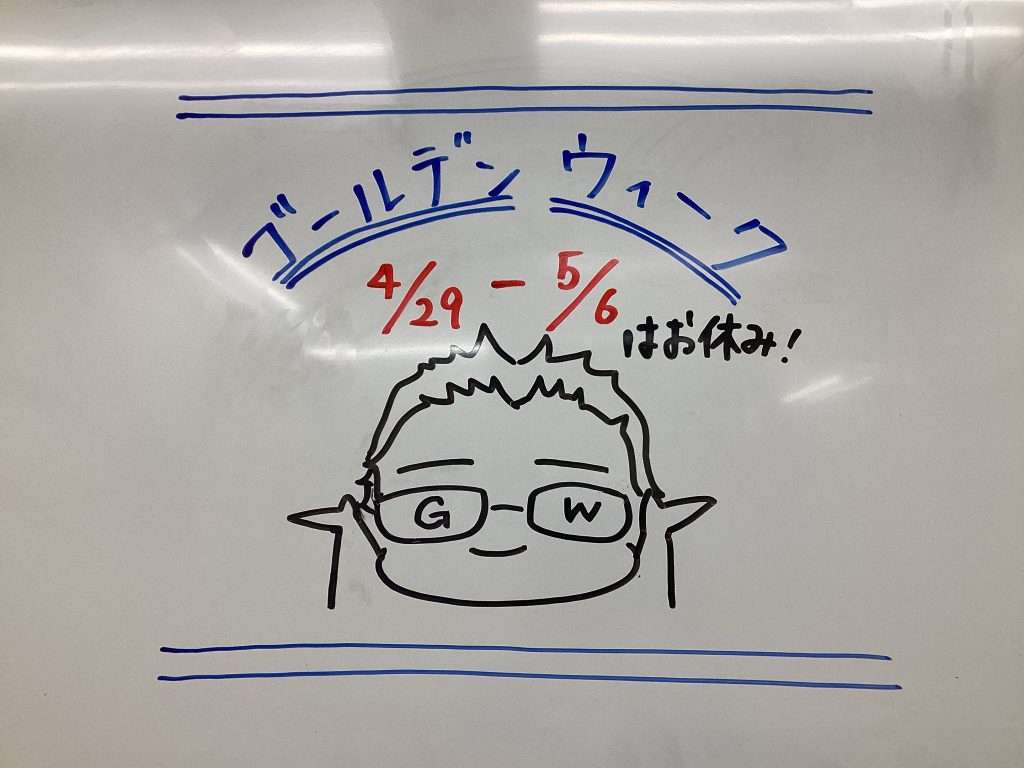 ゴールデン ウィーク
4/29 - 5/6
はお休み!
G W